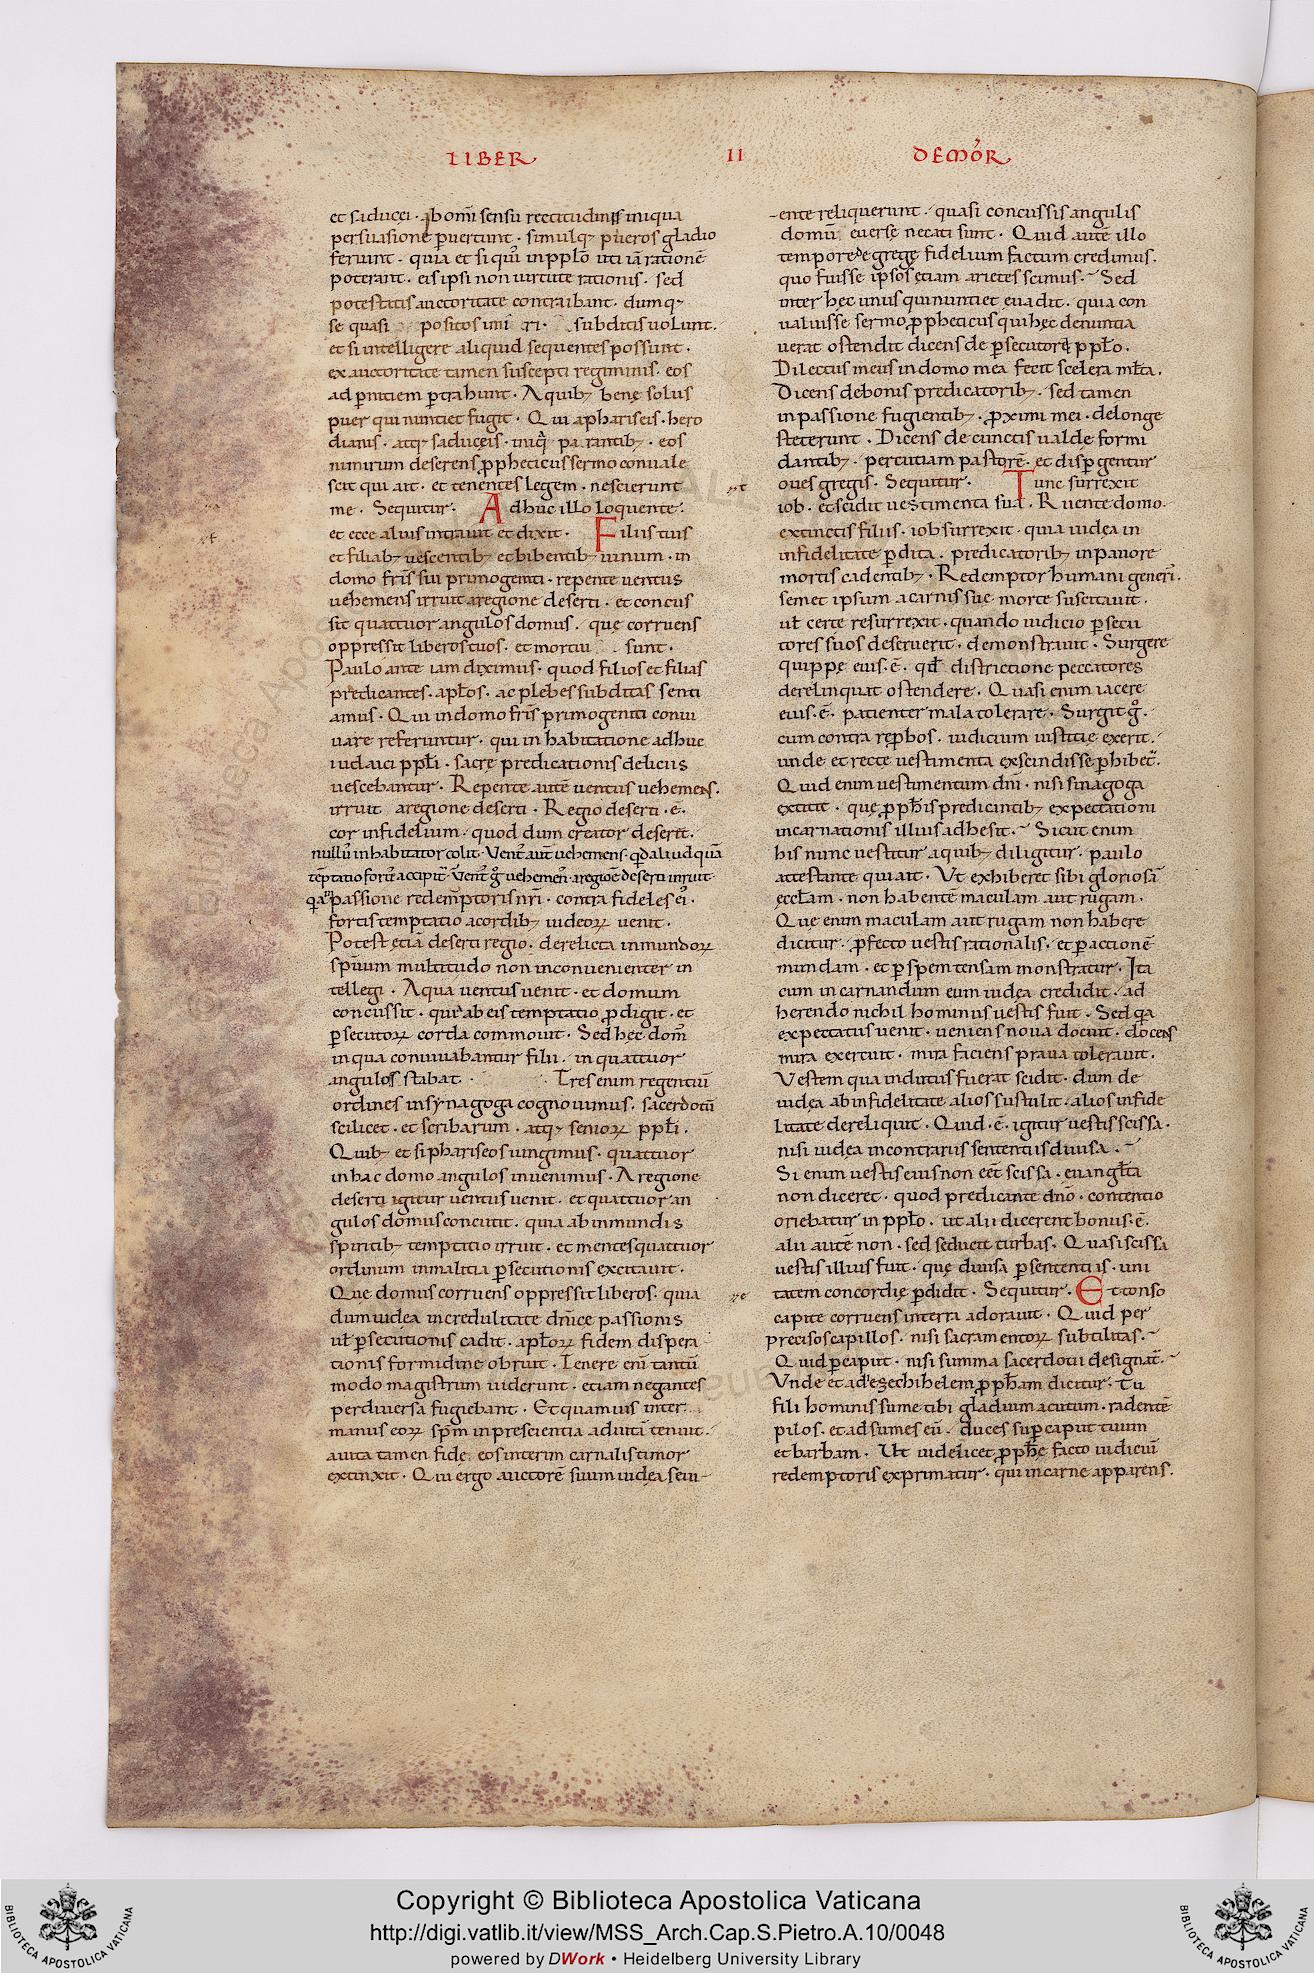 LIBER II DE MOR̄
et saducei · ab om̄i sensu rectitudinis iniqua
persuasione ꝑuertunt · simulq; pueros gladio
feriunt · quia et si qui in pplo uti iā ratione
poterant · eis ipsi non uirtute rationis · sed
potestatis auctoritate contraibant · dumq;
se quasi positos subditis uolunt.
et si intelligere aliquid sequentes possunt ·
ex auctoritate tamen suscepti regiminis · eos
ad ꝑnitiem ꝑtrahunt · A quib; bene solus
puer qui nuntiet fugit · Qui a phariseis · hero
dianis · atq; saduceis · iniq̄ parantib; · eos
nimirum deserens ꝓpheticus sermo conuale
scit qui ait · et tenentes legem · nescierunt
me · Sequitur · Adhuc illo loquente ·
et ecce alius intrauit et dixit · Filiis tuis
et filiab; uescentib; et bibentib; uinum · in
domo fr̄is sui primogeniti · repente uentus
uehemens irruit a regione deserti · et concus
sit quattuor angulos domus · quę corruens
oppressit liberos tuos · et mortui sunt ·
Paulo ante iam diximus · quod filios et filias
predicantes · apl̄os · ac plebes subditas senti
amus · Qui in domo fr̄is primogeniti conui
uare referuntur · qui in habitatione adhuc
iudaici ppl̄i · sacrę predicationis deliciis
uescebantur · Repente autē uentus uehemens ·
irruit a regione deserti · Regio deserti · ē ·
cor infidelium · quod dum creator deserit ·
nullus inhabitator colit · Vent᷒ aūt uehemens · qd aliud quā
tēptatio fortis accipit᷑ · Vent᷒ g̊ uehemens · a regione deserti irruit ·
q̄a in passione redemptoris nr̄i · contra fideles ei᷒ ·
fortis temptatio a cordib; iudeoꝝ uenit ·
Potest etiā deserti regio · derelicta inmundoꝝ
spūum multitudo non inconuenienter in
tellegi · A qua uentus uenit · et domum
concussit · quia ab eis temptatio ꝓdigit · et
ꝑsecutoꝝ corda commouit · Sed hec dom᷒
in qua conuiuabantur filii · in quattuor
angulos stabat · Tres enim regentiū
ordines in synagoga cognouimus · sacerdotū
scilicet · et scribarum · atq; senioꝝ ppl̄i ·
Quib; et si phariseos iungimus · quattuor
in hac domo angulos inuenimus · A regione
deserti igitur uentus uenit · et quattuor an
gulos domus concutit · quia ab inmundis
spiritib; temptatio irruit · et mentes quattuor
ordinum in malitia ꝑsecutionis excitauit ·
Quę domus corruens oppressit liberos · quia
dum iudea in crudelitate dn̄icę passionis
ul̄ ꝑsecutionis cadit · apl̄oꝝ fidem dispera
tionis formidine obruit · Tenere eni tantū
modo magistrum uiderunt · etiam negantes
per diuersa fugiebant · Et quamuis inter
manus eoꝝ spm̄ in prescientia ad uitā tenuit ·
a uita tamen fidei eos interim carnalis timor
extinxit · Qui ergo auctorē suum iudea seui-
-ente reliquerunt · quasi concussis angulis
domū euersę necati sunt · Quid autē illo
tempore de grege fidelium factum credimus ·
quo fuisse ipsos etiam arietes scimus · Sed
inter hec unus qui nuntiet euadit · quia con
ualuisse sermo ꝓpheticus qui hęc denuntia
uerat ostendit dicens de ꝑsecutore ppl̄o ·
Dilectus meus in domo mea fecit scelera ml̄ta ·
Dicens de bonis predicatorib; · sed tamen
in passione fugientib; · ꝓximi mei · de longe
steterunt · Dicens de cunctis ualde formi
dantib; · percutiam pastorē · et dispgentur
oues gregis · Sequitur · Tunc surrexit
iob · et scidit uestimenta sua · Ruente domo ·
extinctis filiis · iob surrexit · quia iudea in
infidelitate ꝑdita · predicatorib; in pauore
mortis cadentib; · Redemptor humani generis ·
semet ipsum a carnis suę morte suscitauit ·
ul̄ certe resurrexit · quando iudicio ꝑsecu
tores suos deseruerit · demonstrauit · Surgere
quippe eius · ē · qd̄ districtione peccatores
derelinquat ostendere · Quasi enim iacere
eius · ē · patienter mala tolerare · Surgit g̊ ·
cum contra reꝑbos · iudicium iustitię exerit ·
unde et recte uestimenta exscindisse ꝑhibet᷑ ·
Quid enim uestimentum dn̄i · nisi sinagoga
extitit · quę ꝓphis predicantib; expectationi
incarnationis illius adhesit · Sicut enim
his nunc uestitur a quib; diligitur · paulo
attestante qui ait · Vt exhiberet sibi gloriosā
ęccl̄am · non habentē maculam aut rugam ·
Quę enim maculam aut rugam non habere
dicitur · ꝓfecto uestis rationalis · et ꝑ actionē
mundam · et ꝑ spem tensam monstratur · Ita
cum incarnandum eum iudęa credidit · ad
herendo nichil hominus uestis fuit · Sed q̄a
expectatus uenit · ueniens noua docuit · docens
mira exercuit · mira faciens praua tolerauit ·
Vestem qua inditus fuerat scidit · dum de
iudęa ab infidelitate alios sustulit · alios infide
litate dereliquit · Quid · ē · igitur uestis scissa ·
nisi iudea in contrariis sententiis diuisa ·
Si enim uestis eius non eēt scissa · euangl̄ta
non diceret · quod predicante dn̄o · contentio
oriebatur in ppl̄o · ut alii dicerent bonus · ē ·
alii autē non · sed seducit turbas · Quasi scissa
uestis illius fuit · quę diuisa ꝑ sententiis · uni
tatem concordię ꝑdidit · Sequitur · Et tonso
capite corruens in terra adorauit · Quid per
precisos capillos · nisi sacramentoꝝ subtilitas ·
Quid ꝑ caput · nisi summa sacerdotii designat᷑ ·
Vnde et ad ezechihelem ꝓpham dicitur · Tu
fili hominis sume tibi gladium acutum · radentē
pilos · et adsumes eū · duces suꝑ caput tuum
et barbam · Ut uidelicet ꝓphę facto iudiciū
redemptoris exprimatur · qui in carne apparens ·
Copyright © Biblioteca Apostolica Vaticana
http://digi.vatlib.it/view/MSS_Arch.Cap.S.Pietro.A.10/0048
powered by DWork • Heidelberg University Library
BIBLIOTECA APOSTOLICA VATICANA
BIBLIOTECA APOSTOLICA VATICANA